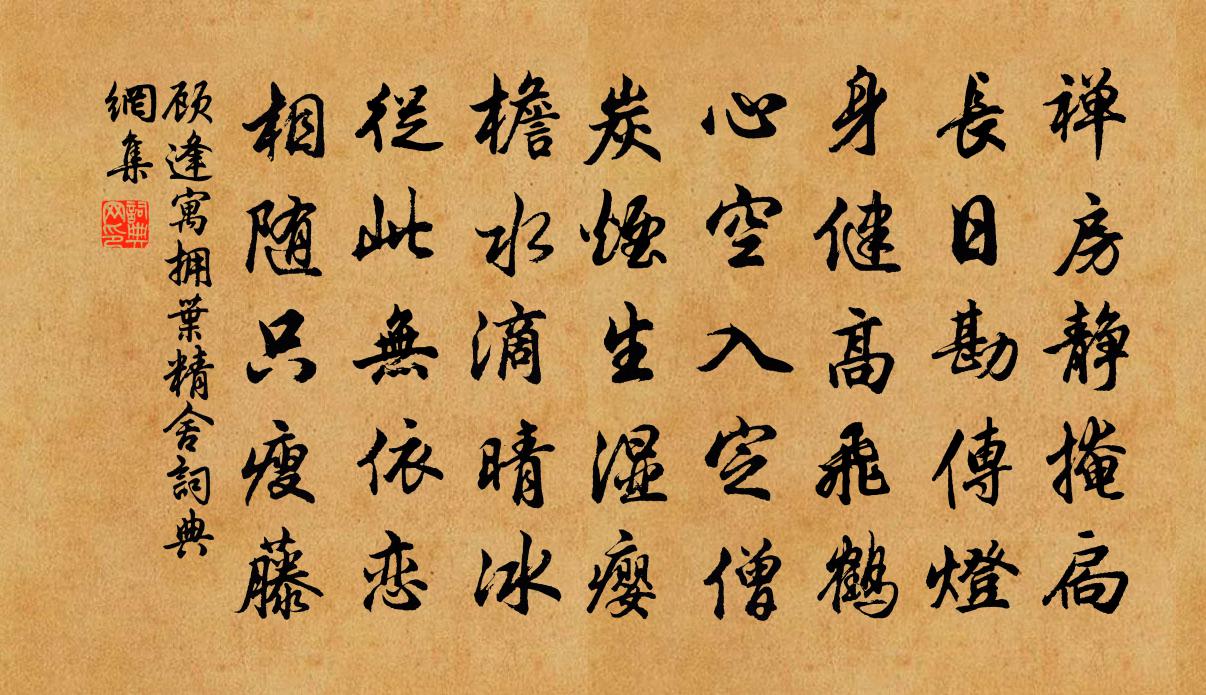 禅房静掩扃
長日勘傳燈
身健髙飛鶴
心空入定僧
炭煙生湿癭
檐水滴晴冰
從此無依恋
相随只瘦藤
顾逢寓拥葉精舍詞典
網集
詞典
网印